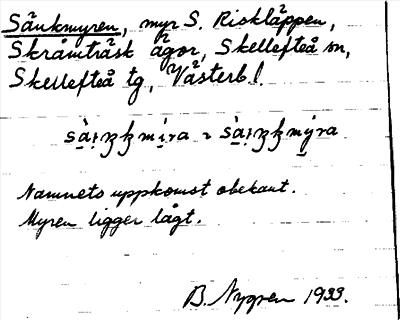 Sänkmyren, myr S. Riskläppen,
Skråmträsk ägor, Skellefteå sn,
Skellefteå tg, Västerb.l.
Namnets uppkomst obekant.
Myren ligger lågt.
B. Nygren 1933.